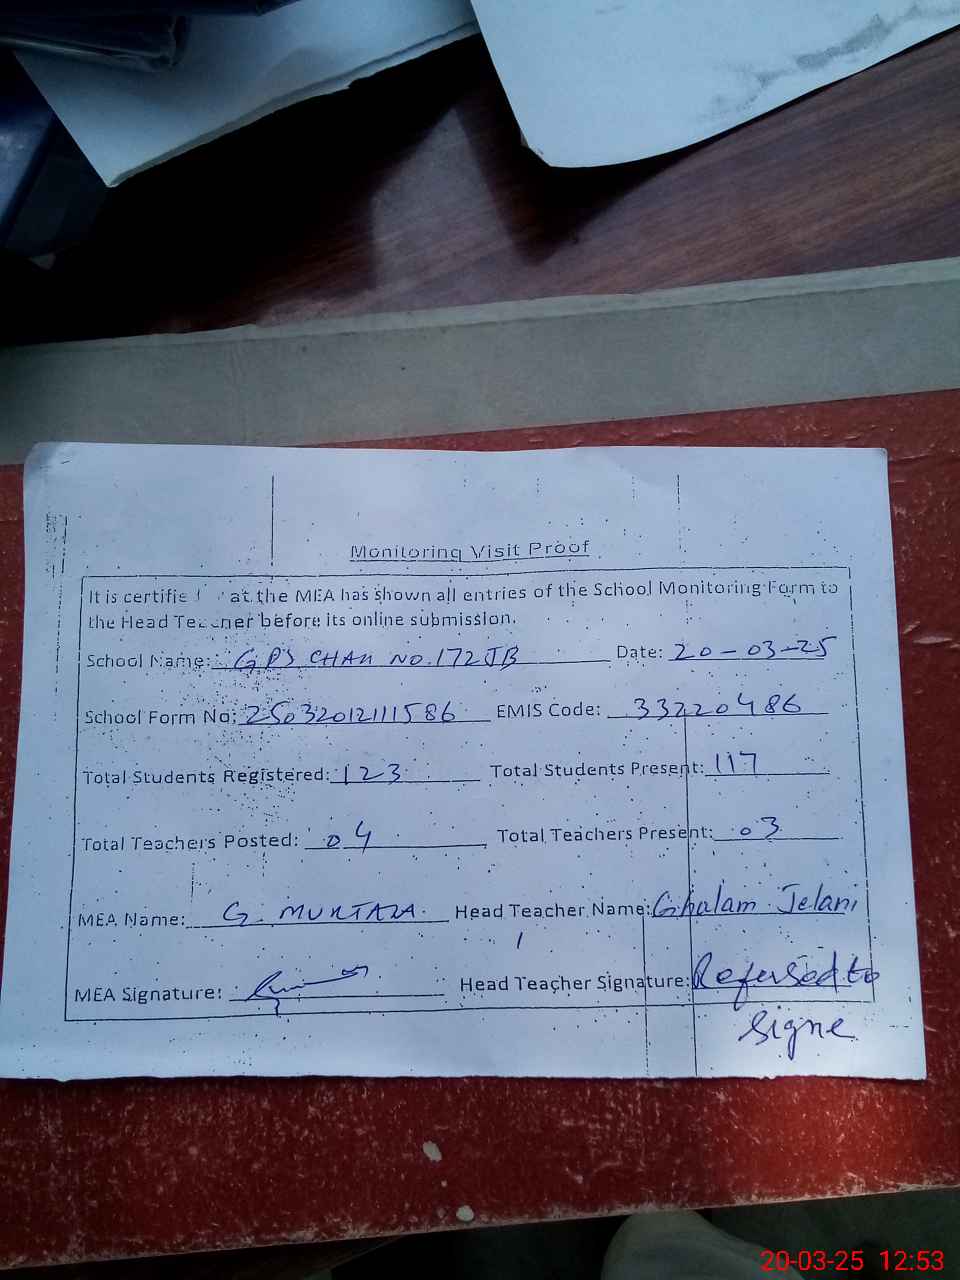 Monitoring Visit Proof
It is certified that the MEA has shown all entries of the School Monitoring Form to
the Head Teacher before its online submission.
School Name: GPS CHAK NO.172JB Date: 20-03-25
School Form No: 2503201211 1586 EMIS Code: 33220486
Total Students Registered: 123 Total Students Present: 117
Total Teachers Posted: 04 Total Teachers Present: 03
MEA Name: G. MURTAZA. Head Teacher Name: Ghulam Jelani
MEA Signature: Head Teacher Signature: Refersed to
Signe
20-03-25 12:53